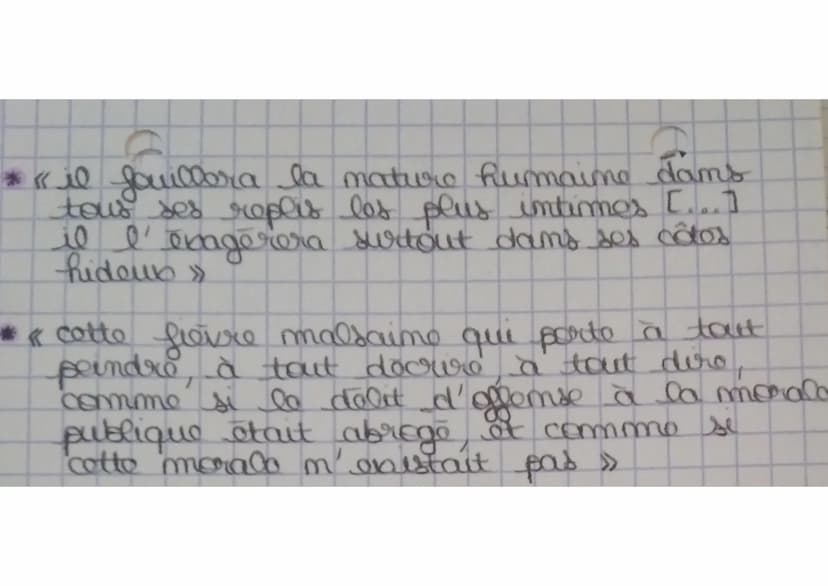 * « il fouillera la nature humaine dans
tous ses replis les plus intimes [...]
il l'exagérera surtout dans ses côtés
hideux »
* « cette fièvre malsaine qui porte à tout
peindre, à tout décrire, à tout dire,
comme si le délit d'offense à la morale
publique était abrogé, et comme si
cette morale n'existait pas »